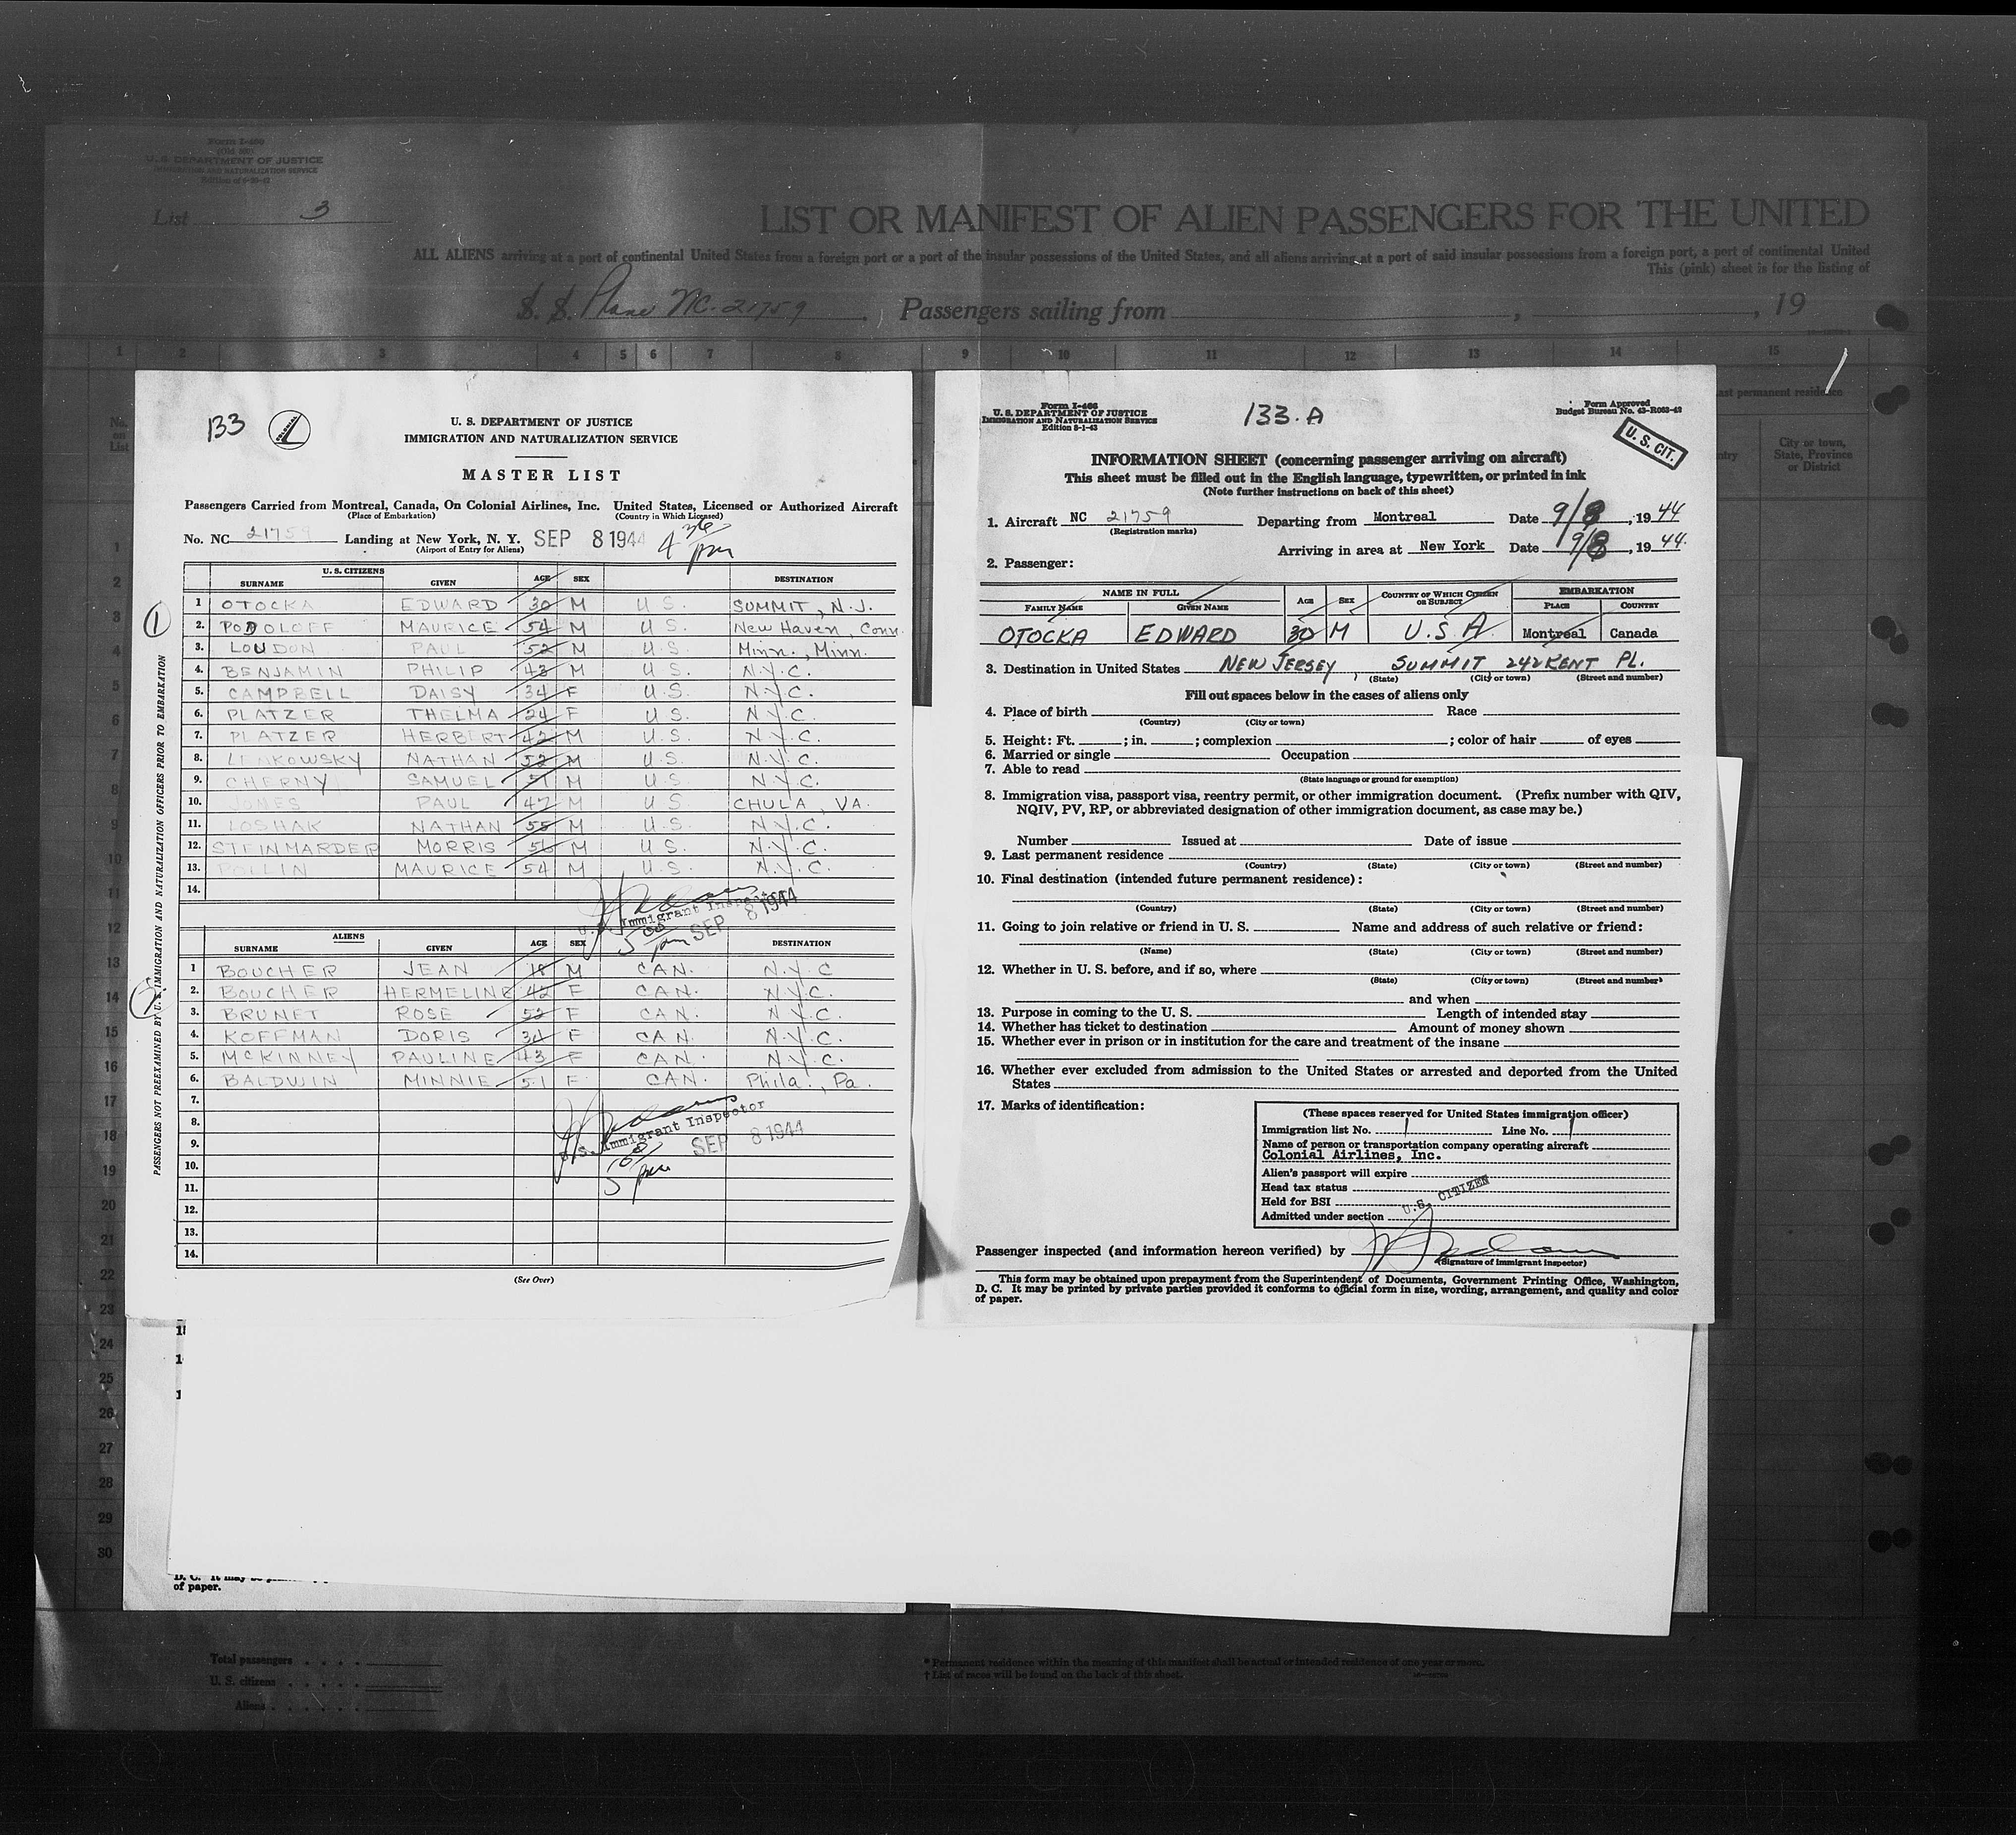 Form I-400
(Old 500)
U. S. DEPARTMENT OF JUSTICE
IMMIGRATION AND NATURALIZATION SERVICE
List 3
LIST OR MANIFEST OF ALIEN PASSENGERS FOR THE UNITED
ALL ALIENS arriving at a port of continental United States from a foreign port or a port of the insular possessions of the United States, and all aliens arriving at a port of said insular possessions from a foreign port, a port of continental United
This (pink) sheet is for the listing of
S. S. Plane NC. 21759 . Passengers sailing from , , 19
1 2 3 4 5 6 7 8 9 10 11 12 13 14 15
No. on List
last permanent residence
City or town, State, Province or District
133
U. S. DEPARTMENT OF JUSTICE
IMMIGRATION AND NATURALIZATION SERVICE
MASTER LIST
Passengers Carried from Montreal, Canada, On Colonial Airlines, Inc. United States, Licensed or Authorized Aircraft
(Place of Embarkation) (Country in Which Licensed)
No. NC 21759 Landing at New York, N. Y. SEP 8 1944 4 36 pm
(Airport of Entry for Aliens)
U. S. CITIZENS
SURNAME GIVEN AGE SEX DESTINATION
1 OTOCKA EDWARD 30 M U S. SUMMIT, N.J.
2. PODOLOFF MAURICE 54 M U S. New Haven, Conn.
3. LOUDON PAUL 52 M U.S. Minn., Minn.
4. BENJAMIN PHILIP 43 M U.S. N.Y.C.
5. CAMPBELL DAISY 34 F U.S. N.Y.C.
6. PLATZER THELMA 24 F U S. N.Y.C.
7. PLATZER HERBERT 42 M U.S. N.Y.C.
8. LENKOWSKY NATHAN 52 M U.S. N.Y.C.
9. CHERNY SAMUEL 51 M U.S. N.Y.C.
10. JONES PAUL 47 M U S CHULA, VA.
11. LOSHAK NATHAN 55 M U.S. N.Y.C.
12. STEINMARDER MORRIS 51 M U S. N.Y.C.
13. POLLIN MAURICE 54 M U.S. N.Y.C.
14.
U.S. Immigrant Inspector
5 00 pm SEP 8 1944
ALIENS
SURNAME GIVEN AGE SEX DESTINATION
1 BOUCHER JEAN 18 M CAN. N.Y.C
2. BOUCHER HERMELINE 42 F CAN. N.Y.C.
3. BRUNET ROSE 52 F CAN. N.Y.C.
4. KOFFMAN DORIS 34 F CAN. N.Y.C.
5. MCKINNEY PAULINE 43 F CAN. N.Y.C.
6. BALDWIN MINNIE 51 F CAN. Phila., Pa.
7.
8.
9.
10.
11.
12.
13.
14.
U.S. Immigrant Inspector SEP 8 1944
5 00 pm
(See Over)
PASSENGERS NOT PREEXAMINED BY U. S. IMMIGRATION AND NATURALIZATION OFFICERS PRIOR TO EMBARKATION
1
2
Form I-466
U. S. DEPARTMENT OF JUSTICE
IMMIGRATION AND NATURALIZATION SERVICE
Edition 8-1-43
133. A
Form Approved
Budget Bureau No. 43-R063-42
U. S. CIT.
INFORMATION SHEET (concerning passenger arriving on aircraft)
This sheet must be filled out in the English language, typewritten, or printed in ink
(Note further instructions on back of this sheet)
1. Aircraft NC 21759 Departing from Montreal Date 9/8, 19 44
(Registration marks)
Arriving in area at New York Date 9/8, 19 44.
2. Passenger:
NAME IN FULL AGE SEX COUNTRY OF WHICH CITIZEN OR SUBJECT EMBARKATION
FAMILY NAME GIVEN NAME PLACE COUNTRY
OTOCKA EDWARD 30 M U.S A. Montreal Canada
3. Destination in United States NEW JERSEY, SUMMIT 242 KENT PL.
(State) (City or town) (Street and number)
Fill out spaces below in the cases of aliens only
4. Place of birth Race
(Country) (City or town)
5. Height: Ft. ; in. ; complexion ; color of hair of eyes
6. Married or single Occupation
7. Able to read
(State language or ground for exemption)
8. Immigration visa, passport visa, reentry permit, or other immigration document. (Prefix number with QIV,
NQIV, PV, RP, or abbreviated designation of other immigration document, as case may be.)
Number Issued at Date of issue
9. Last permanent residence
(Country) (State) (City or town) (Street and number)
10. Final destination (intended future permanent residence):
(Country) (State) (City or town) (Street and number)
11. Going to join relative or friend in U. S. Name and address of such relative or friend:
(Name) (State) (City or town) (Street and number)
12. Whether in U. S. before, and if so, where
(State) (City or town) (Street and number)
and when
13. Purpose in coming to the U. S. Length of intended stay
14. Whether has ticket to destination Amount of money shown
15. Whether ever in prison or in institution for the care and treatment of the insane
16. Whether ever excluded from admission to the United States or arrested and deported from the United
States
17. Marks of identification:
(These spaces reserved for United States immigration officer)
Immigration list No. 1 Line No. 1
Name of person or transportation company operating aircraft
Colonial Airlines, Inc.
Alien's passport will expire
Head tax status
Held for BSI
Admitted under section
U.S. CITIZEN
Passenger inspected (and information hereon verified) by
(Signature of Immigrant Inspector)
This form may be obtained upon prepayment from the Superintendent of Documents, Government Printing Office, Washington,
D. C. It may be printed by private parties provided it conforms to official form in size, wording, arrangement, and quality and color
of paper.
1
2
3
4
5
6
7
8
9
10
11
12
13
14
15
16
17
18
19
20
21
22
23
24
25
26
27
28
29
30
D. C. It may be
of paper.
Total passengers
U. S. citizens
Aliens
* Permanent residence within the meaning of this manifest shall be actual or intended residence of one year or more.
† List of races will be found on the back of this sheet.